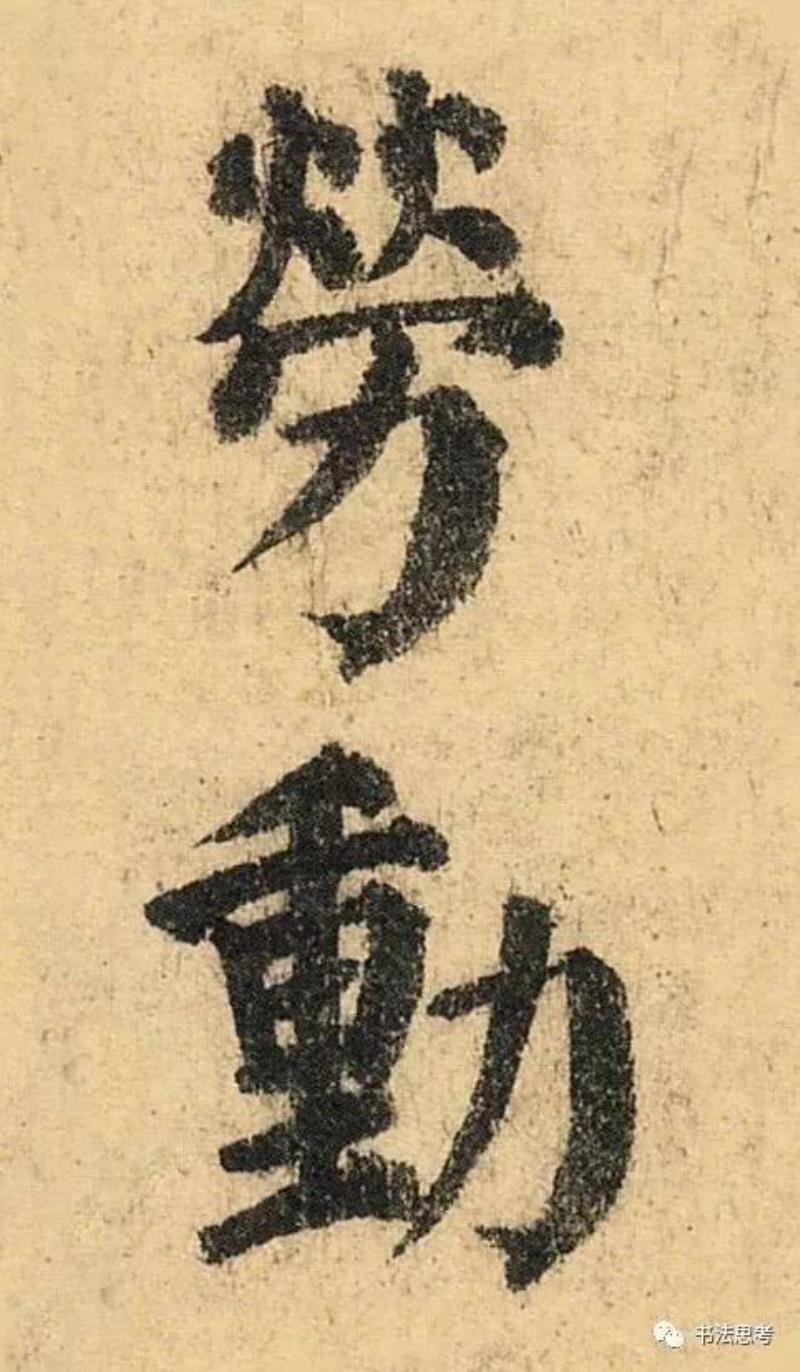 勞
動
书法思考